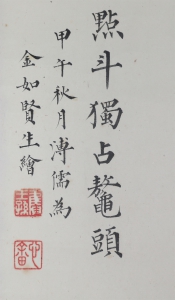 點斗獨占鼇頭
甲午秋月溥儒為
金如賢生繪